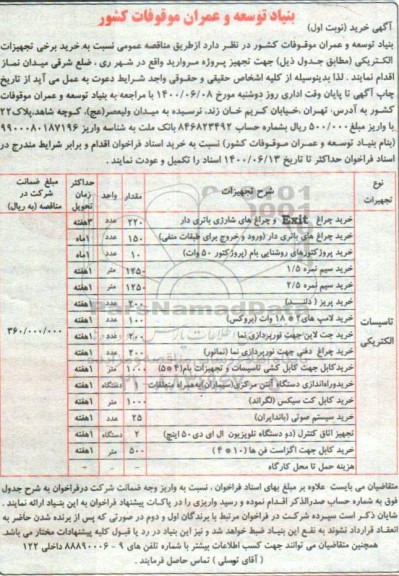 بنیاد توسعه و عمران موقوفات کشور
آگهی خرید (نوبت اول)
بنیاد توسعه و عمران موقوفات کشور در نظر دارد ازطریق مناقصه عمومی نسبت به خرید برخی تجهیزات
الکتریکی (مطابق جدول ذیل) جهت تجهیز پروژه مروارید واقع در شهر ری ، ضلع شرقی میدان نماز
اقدام نمایند . لذا بدینوسیله از کلیه اشخاص حقیقی و حقوقی واجد شرایط دعوت به عمل می آید از تاریخ
چاپ آگهی تا پایان وقت اداری روز دوشنبه مورخ ۱۴۰۰/۰۶/۰۸ با مراجعه به بنیاد توسعه و عمران موقوفات
کشور به آدرس: تهران ،خیابان کریم خان زند، نرسیده به میدان ولیعصر(عج)، کوچه شاهد،پلاک۲۲
با واریز مبلغ ۵۰۰/۰۰۰ ریال بشماره حساب ۸۴۶۸۲۳۴۹۲ بانک ملت به شناسه واریز ۹۹۰۰۰۸۰۱۸۷۱۹۶
(بنام بنیاد توسعه و عمران موقوفات کشور) نسبت به خرید اسناد فراخوان اقدام و برابر شرایط مندرج در
اسناد فراخوان حداکثر تا تاریخ ۱۴۰۰/۰۶/۱۳ اسناد را تکمیل و عودت نمایند .
نوع تجهیزات شرح تجهیزات مقدار واحد حداکثر زمان تحویل مبلغ ضمانت شرکت در مناقصه (به ریال)
تاسیسات الکتریکی ۳۶۰/۰۰۰/۰۰۰
خرید چراغ Exit و چراغ های شارژی باتری دار ۲۲۰ عدد ۳هفته
خرید چراغ های باتری دار (ورود و خروج برای طبقات منفی) ۱۵۰ عدد ۱ماه
خرید پروژکتورهای روشنایی بام (پروژکتور ۵۰ وات) ۱۰ عدد ۱ماه
خرید سیم نمره ۱/۵ ۱۲۵۰ متر ۱هفته
خرید سیم نمره ۲/۵ ۱۲۵۰ متر ۱هفته
خرید پریز ( دلند) ۲۰۰ عدد ۱هفته
خرید لامپ های۲*۱۸ وات (بروکس) ۱۰۰ عدد ۱هفته
خرید جت لاین جهت نورپردازی نما ۲۰۰ عدد ۱هفته
خرید چراغ دفنی جهت نورپردازی نما (نمانور) ۲۰۰ عدد ۱هفته
خریدکابل جهت کابل کشی تاسیسات و تجهیزات بام(۴*۵) ۱۰۰۰ متر ۱هفته
خریدوراه‌اندازی دستگاه آنتن مرکزی(سیماران)به‌همراه متعلقات ۱ دستگاه ۱هفته
خرید کابل کت سیکس (لگراند) ۱۰۰۰ متر ۱هفته
خرید سیستم صوتی (باندایران) ۲۵ عدد ۱هفته
تجهیز اتاق کنترل (دو دستگاه تلویزیون ال ای دی ۵۰ اینچ) ۲ دستگاه ۱هفته
خرید کابل جهت اگزاست فن ها (۱۰*۴) ۵۰۰ متر ۱هفته
هزینه حمل تا محل کارگاه - - -
متقاضیان می بایست علاوه بر مبلغ بهای اسناد فراخوان ، نسبت به واریز وجه ضمانت شرکت درفراخوان به شرح جدول
فوق به شماره حساب صدرالذکر اقدام نموده و رسید واریزی را در پاکات پیشنهاد فراخوان به این بنیاد ارائه نمایند .
شایان ذکر است سپرده شرکت در فراخوان مرتبط با برندگان اول و دوم در صورتی که پس از برنده شدن حاضر به
انعقاد قرارداد نشوند به نفع این بنیاد ضبط خواهد شد و نیز این بنیاد در رد یا قبول کلیه پیشنهادات مختار می باشد.
همچنین متقاضیان می توانند جهت کسب اطلاعات بیشتر با شماره تلفن های ۹ - ۸۸۸۹۰۰۰۶ داخلی ۱۲۲
( آقای توسلی ) تماس حاصل فرمایند .